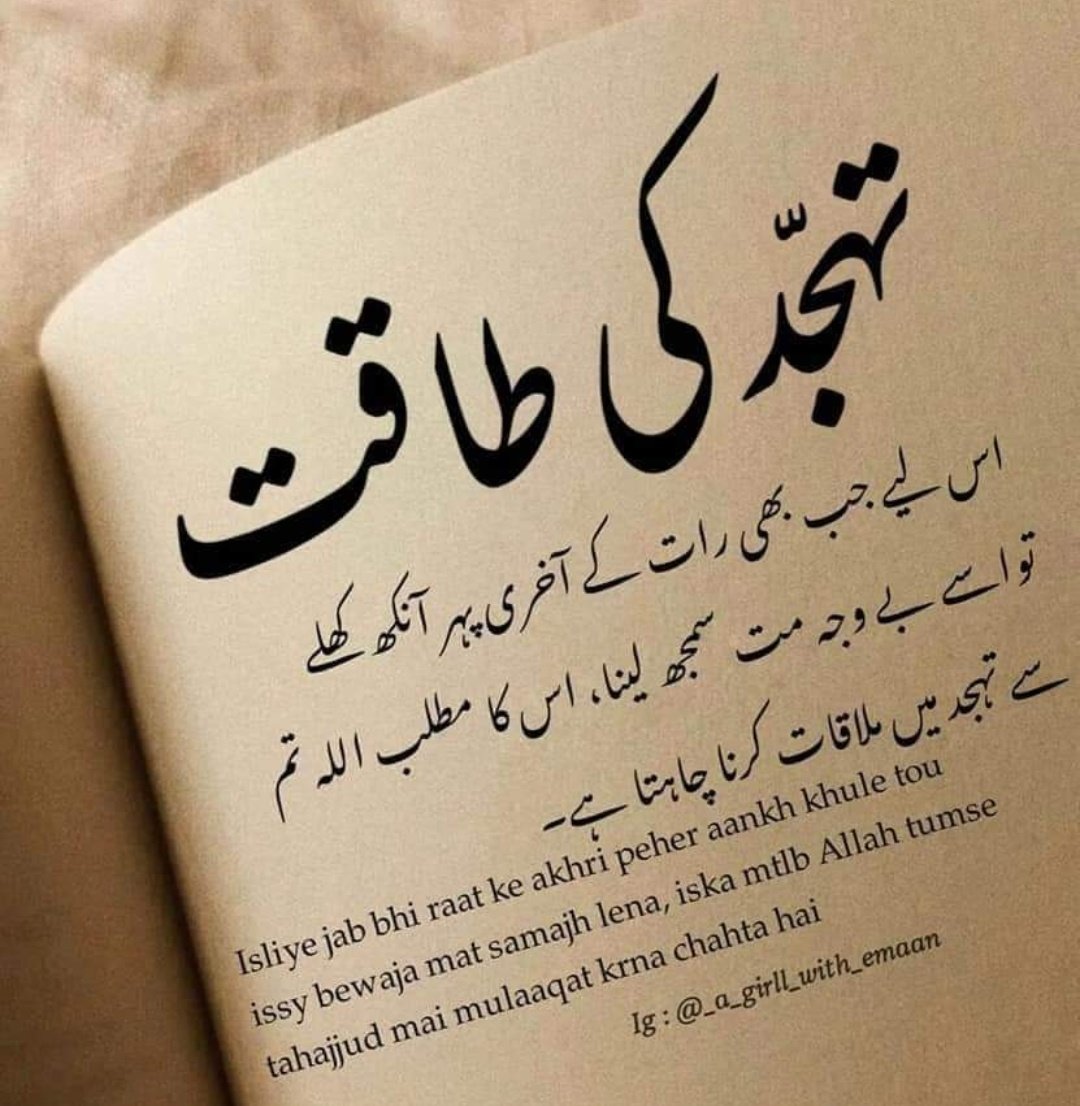 تہجّد کی طاقت
اس لیے جب بھی رات کے آخری پہر آنکھ کھلے
تو اسے بے وجہ مت سمجھ لینا، اس کا مطلب اللہ تم
سے تہجد میں ملاقات کرنا چاہتا ہے۔
Isliye jab bhi raat ke akhri peher aankh khule tou
issy bewaja mat samajh lena, iska mtlb Allah tumse
tahajjud mai mulaaqat krna chahta hai
Ig : @_a_girll_with_emaan